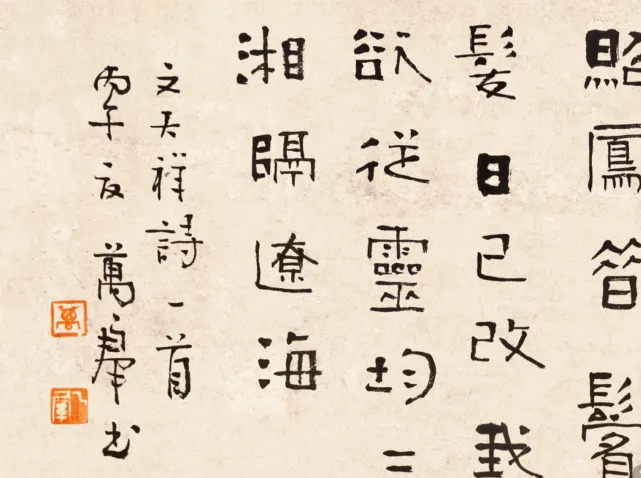 照鳳昔鬢
髮日已改我
欲從靈均
湘隔遼海
文天祥詩一首
丙午 萬羣書
萬